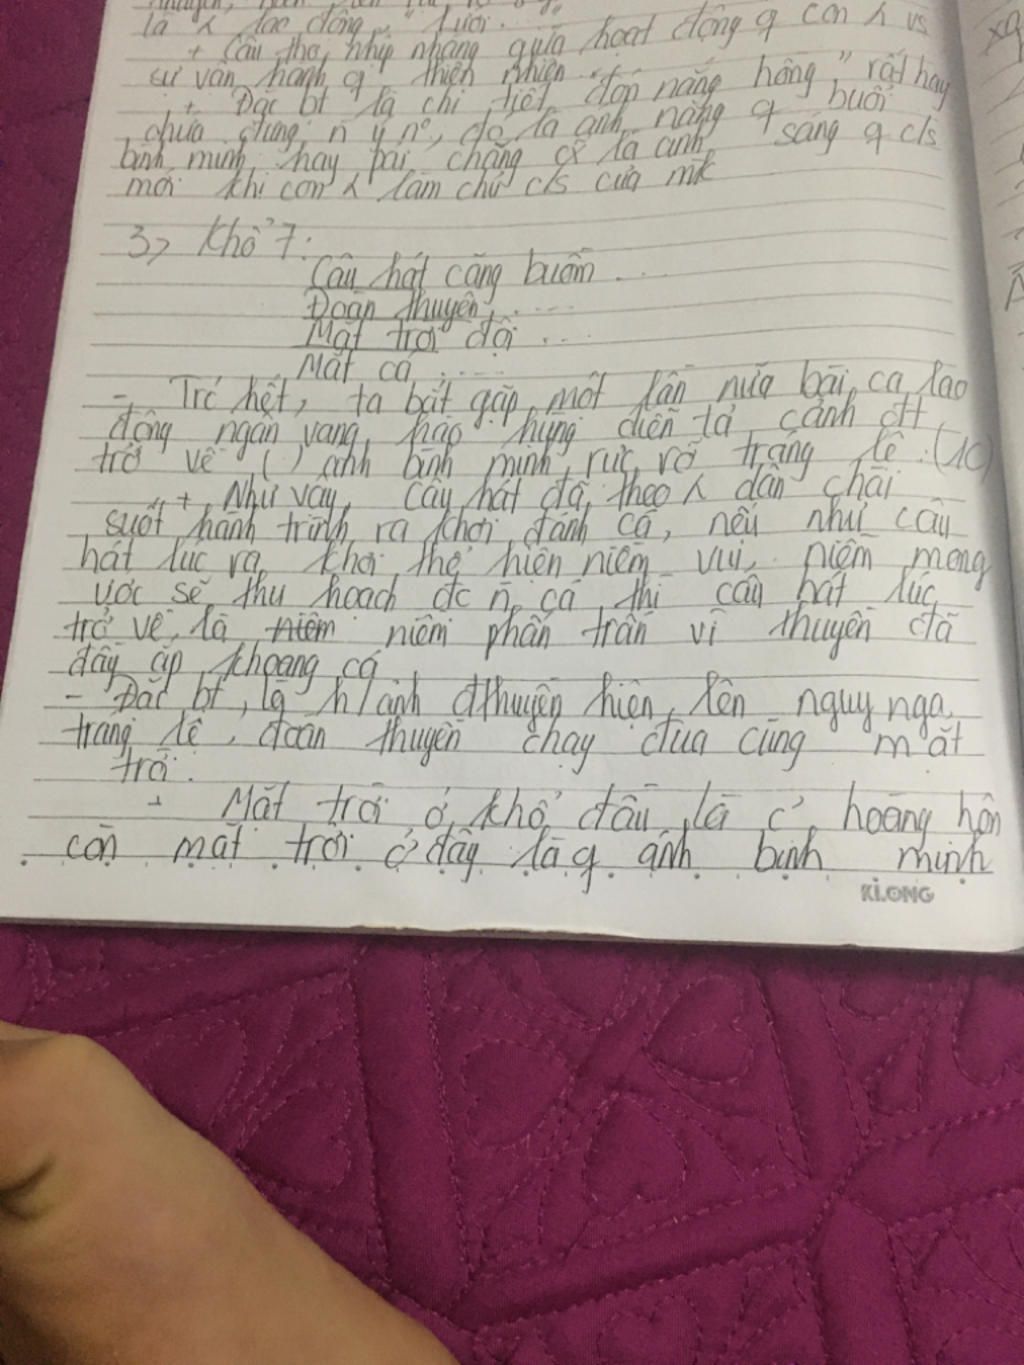 là λ lao động " lưới.
+ Câu thơ, nhịp nhàng giữa hoạt động q con λ vs
sự vận hành q thiên nhiên "đón nắng hồng" rất hay
+ Đặc bt là chi tiết đón nắng buổi
chứa đựng n ý nº, đó là ánh nắng q sáng q c/s
bình minh, hay phải chăng là ánh
mới khi con λ làm chủ c/s của mk
3> Khổ 7:
Câu hát căng buồm ...
Đoàn thuyền, ....
Mặt trời đội ...
Mắt cá ....
- Trc hết, ta bắt gặp một lần nữa bài ca lao
động ngân vang, hào hứng diễn tả cảnh
trở về ( ) ánh bình minh, rực rỡ tráng lệ. (1C)
+ Như vậy, câu hát đã theo λ dân chài
suốt hành trình ra khơi đánh cá, nếu như câu
hát lúc ra khơi thể hiện niềm vui, niềm mong
ước sẽ thu hoạch đc n cá, thì câu hát lúc
trở về, là niềm niềm phấn trấn vì thuyền đã
đầy ắp khoang cá
- Đặc bt, là h/ảnh đthuyền hiện lên nguy nga
tráng lệ, đoàn thuyền chạy đua cùng mặt
trời.
+ Mặt trời ở khổ đầu là c' hoàng hôn
còn mặt trời ở đây là q ánh bình minh
KLONG